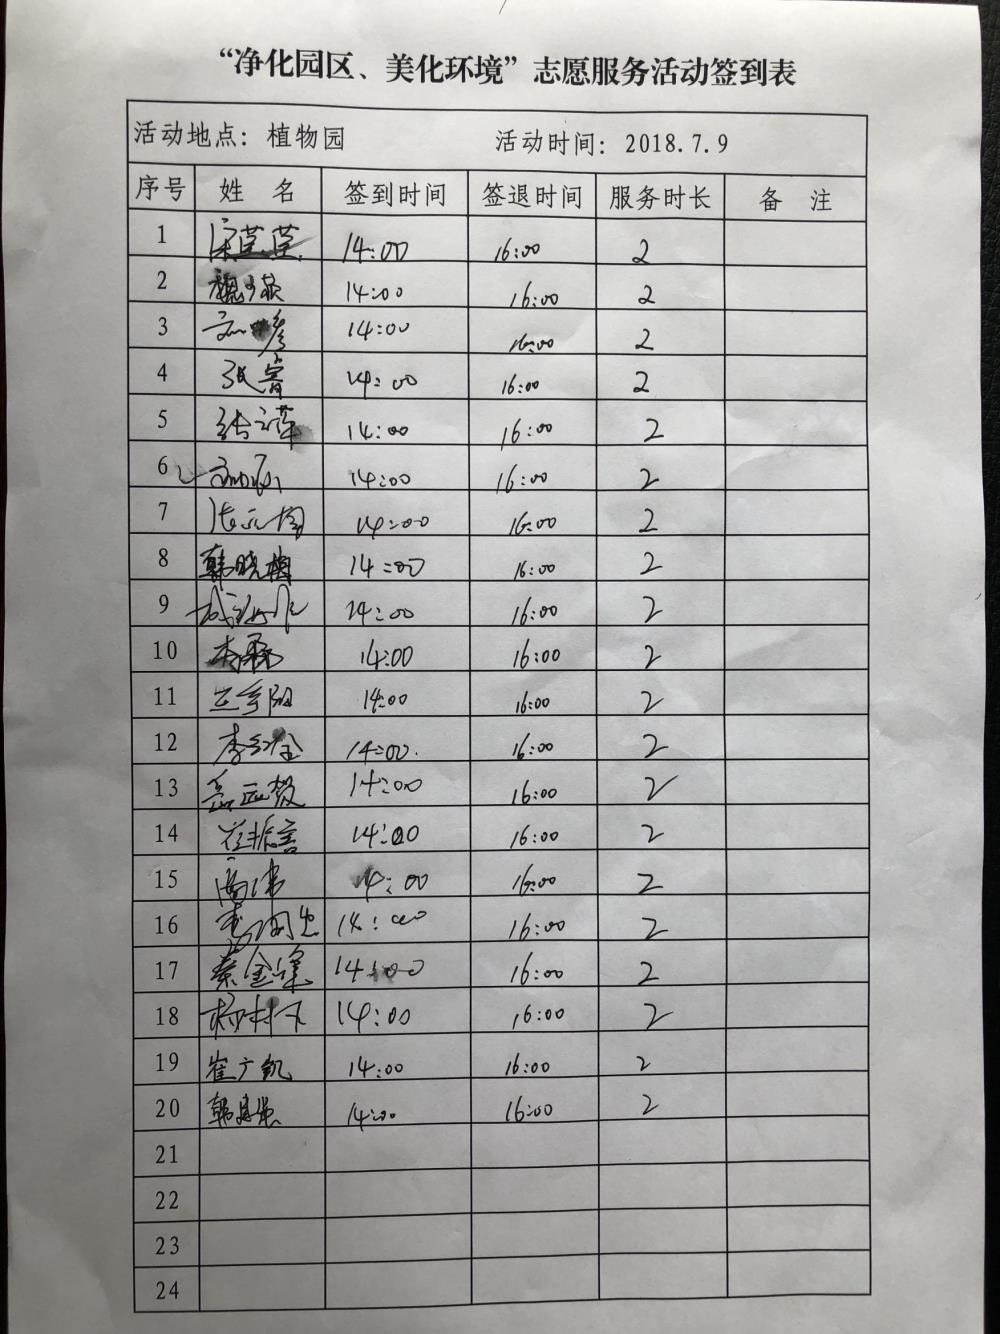 “净化园区、美化环境”志愿服务活动签到表
活动地点：植物园 活动时间：2018.7.9
序号 姓 名 签到时间 签退时间 服务时长 备 注
1 14:00 16:00 2
2 14:00 16:00 2
3 14:00 16:00 2
4 14:00 16:00 2
5 14:00 16:00 2
6 14:00 16:00 2
7 14:00 16:00 2
8 韩晓梅 14:00 16:00 2
9 14:00 16:00 2
10 14:00 16:00 2
11 14:00 16:00 2
12 14:00 16:00 2
13 14:00 16:00 2
14 崔振善 14:00 16:00 2
15 高伟 14:00 16:00 2
16 14:00 16:00 2
17 秦金峰 14:00 16:00 2
18 14:00 16:00 2
19 崔广凯 14:00 16:00 2
20 14:00 16:00 2
21
22
23
24